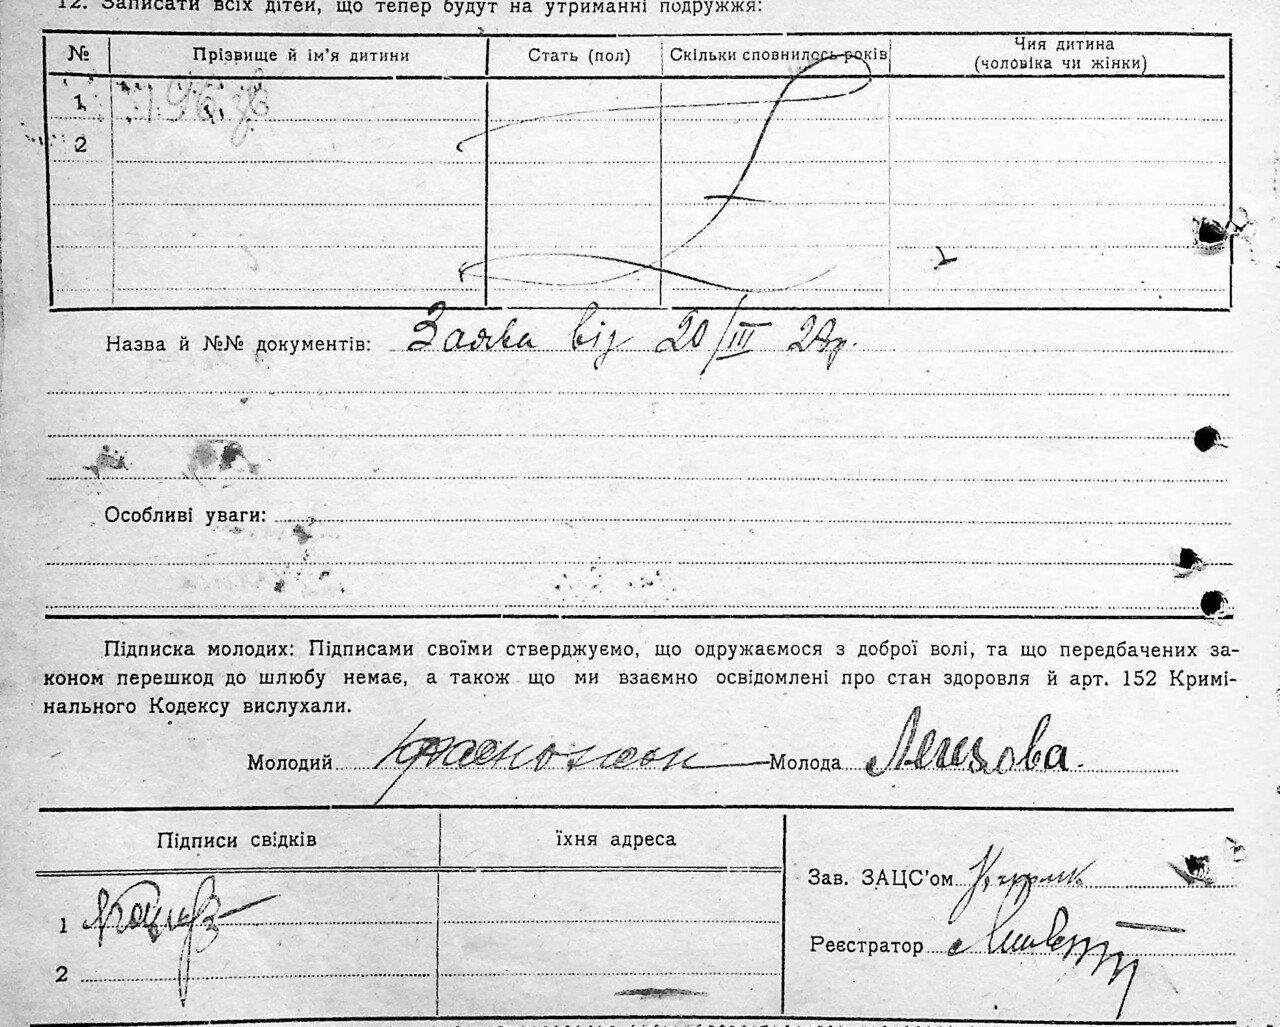 12. Записати всіх дітей, що тепер будут на утриманні подружжя:
№ Прізвище й ім'я дитини Стать (пол) Скільки сповнилось років Чия дитина (чоловіка чи жінки)
1
2
Назва й №№ документів: Заява від 20/III 29р.
Особливі уваги:
Підписка молодих: Підписами своїми стверджуємо, що одружаємося з доброї волі, та що передбачених за-
коном перешкод до шлюбу немає, а також що ми взаємно освідомлені про стан здоровля й арт. 152 Кримі-
нального Кодексу вислухали.
Молодий Молода
Підписи свідків їхня адреса
Зав. ЗАЦС'ом
1
Реєстратор
2